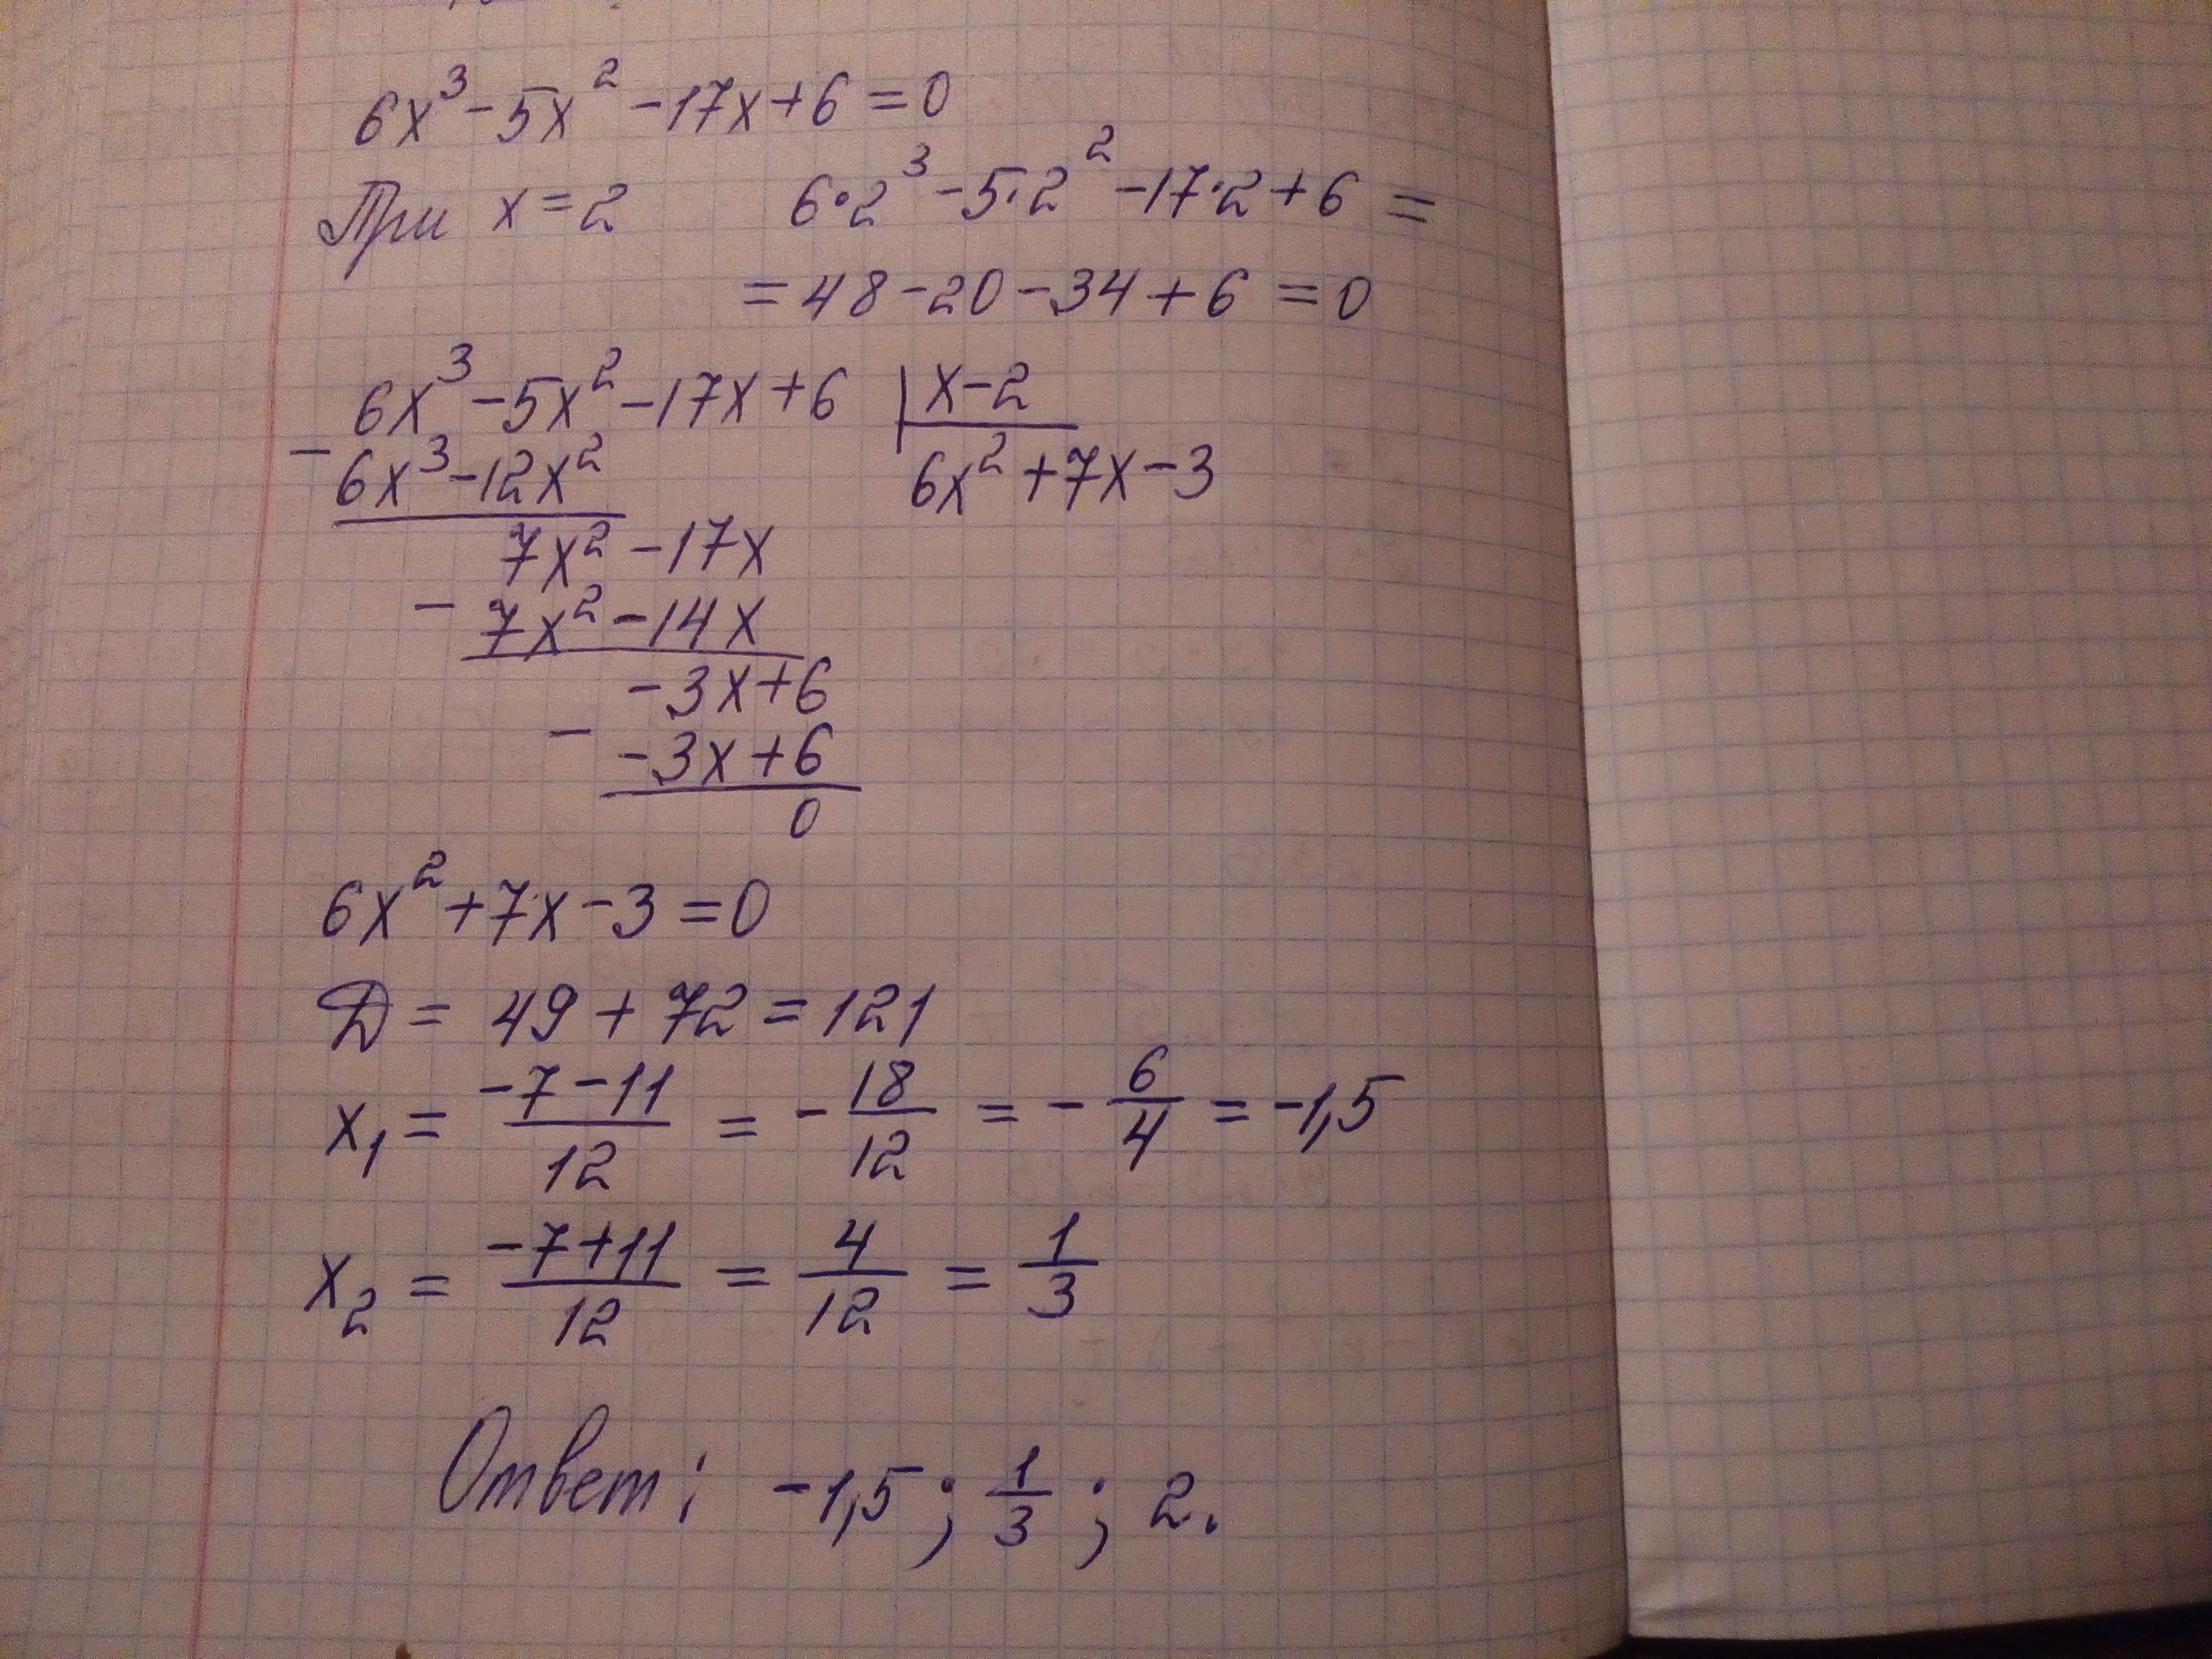 6x³-5x²-17x+6=0
При x=2 6·2³-5·2²-17·2+6=
=48-20-34+6=0
6x³-5x²-17x+6 | x-2
- 6x³-12x² 6x²+7x-3
7x²-17x
- 7x²-14x
-3x+6
- -3x+6
0
6x²+7x-3=0
D=49+72=121
x₁= (-7-11)/12 = -18/12 = -6/4 = -1,5
x₂= (-7+11)/12 = 4/12 = 1/3
Ответ: -1,5; 1/3; 2.